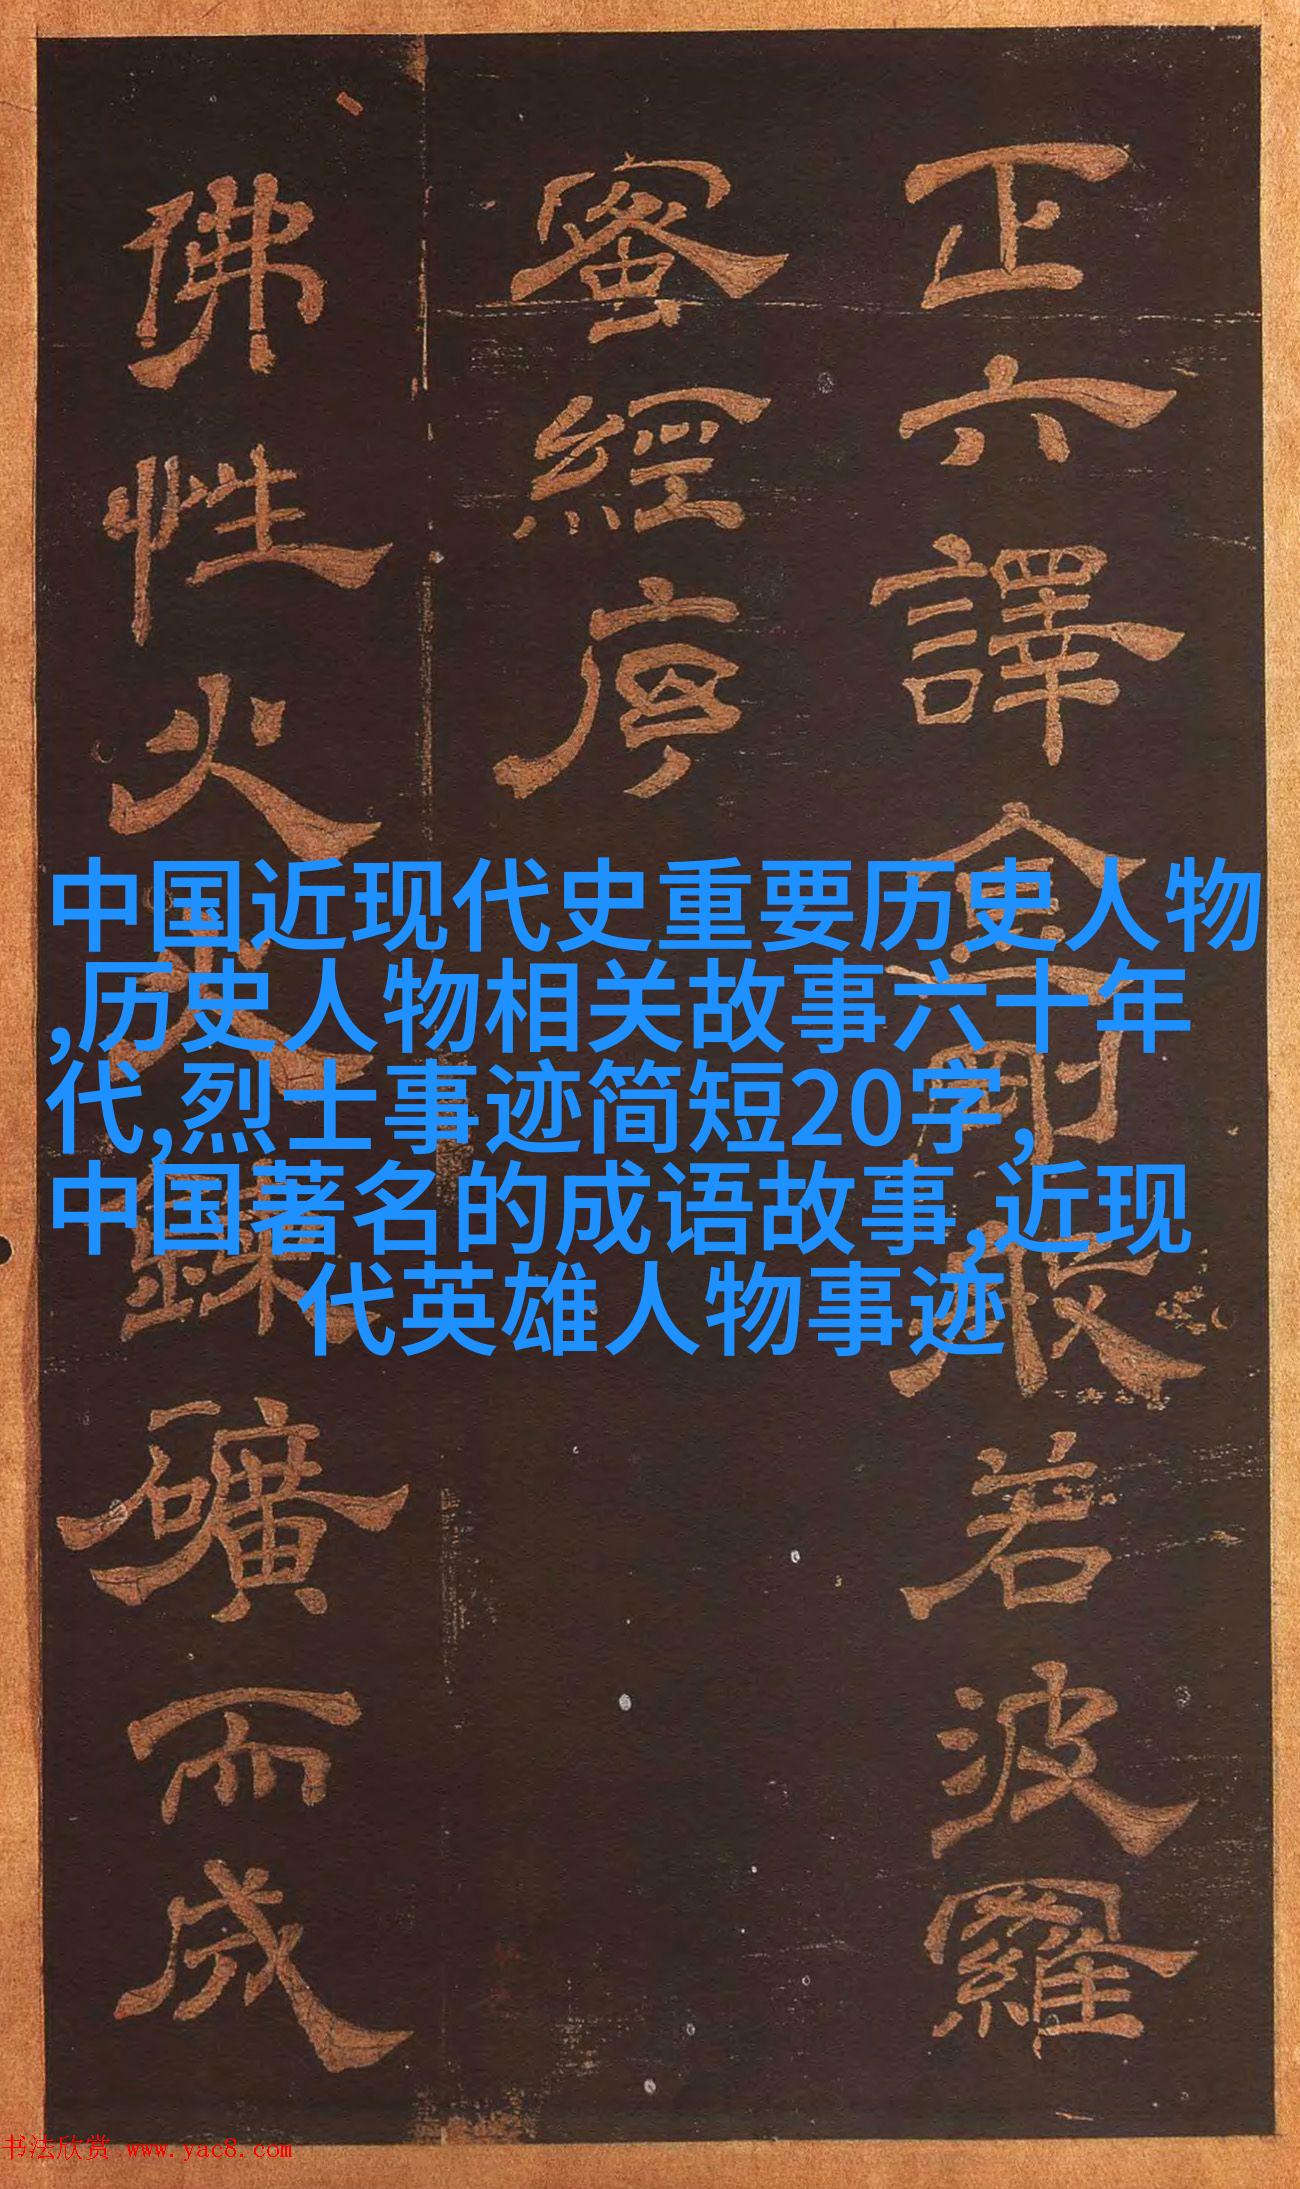 正六譯金剛般若波羅
蜜經序
佛性火鍊礦而成
中国近现代史重要历史人物
,历史人物相关故事六十年
代,烈士事迹简短20字,
中国著名的成语故事,近现
代英雄人物事迹
书法欣赏 www.yac8.com